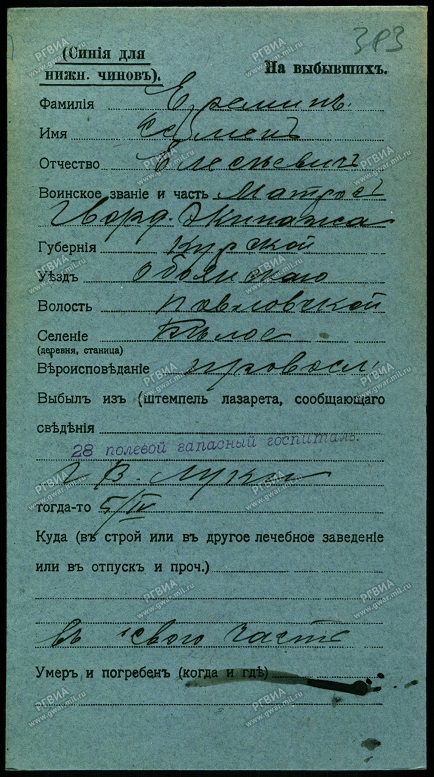 383
(Синія для
нижн. чиновъ).
На выбывшихъ.
Фамилія Ереминъ
Имя Семенъ
Отчество
Воинское званіе и часть Матросъ
Гвард. Экипажа
Губернія Курской
Уѣздъ Обоянскаго
Волость Павловской
Селеніе Бѣлое
(деревня, станица)
Вѣроисповѣданіе правосл
Выбылъ из (штемпель лазарета, сообщающаго
свѣдѣнія)
28 полевой запасный госпиталь.
В. Луки
тогда-то 5/IV
Куда (въ строй или въ другое лечебное заведеніе
или въ отпуск и проч.)
въ свою часть
Умеръ и погребен (когда и гдѣ)
РГВИА
www.gwar.mil.ru